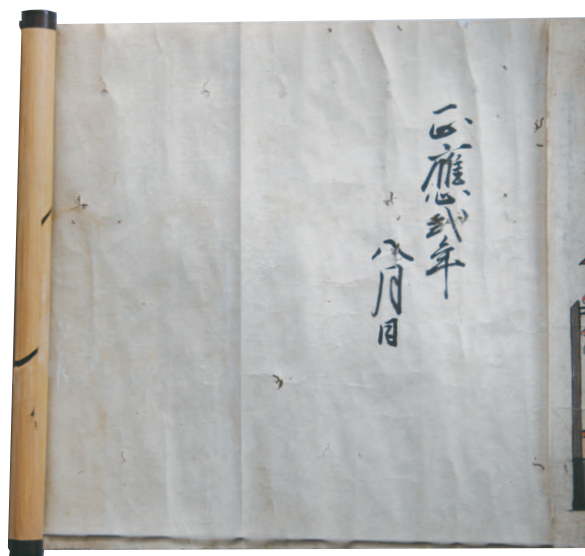 正應弐年
八月日